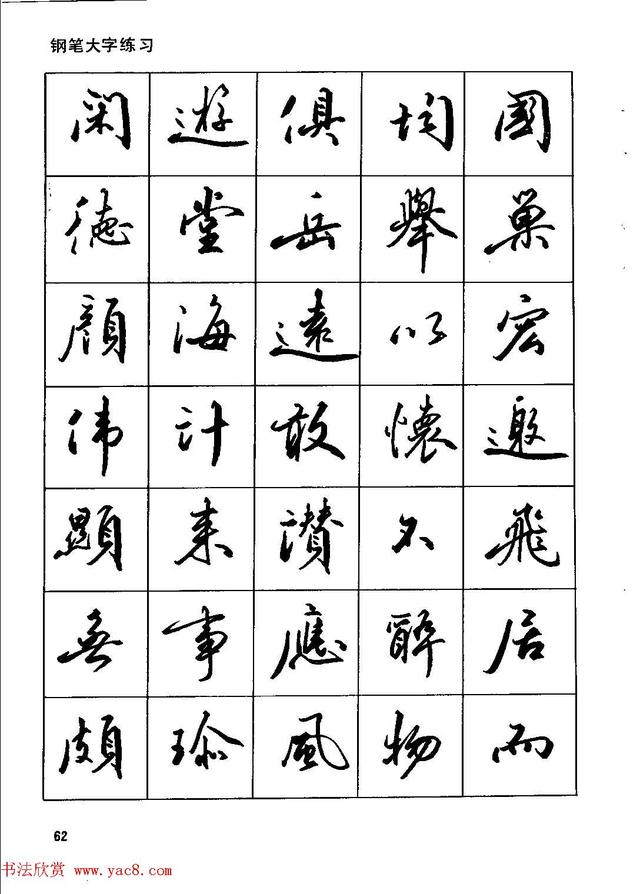 钢笔大字练习
闲遊俱均國
德堂岳舉巢
顔海遠以宏
伟计敢懷邀
顯来讃不飛
無事應醉居
頗瑜風物而
62
书法欣赏 www.yac8.com